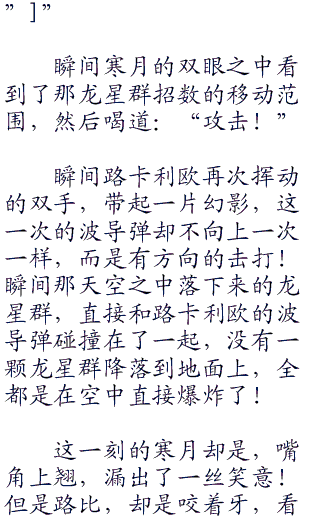 ”]”
瞬间寒月的双眼之中看
到了那龙星群招数的移动范
围，然后喝道：“攻击！”
瞬间路卡利欧再次挥动
的双手，带起一片幻影，这
一次的波导弹却不向上一次
一样，而是有方向的击打！
瞬间那天空之中落下来的龙
星群，直接和路卡利欧的波
导弹碰撞在了一起，没有一
颗龙星群降落到地面上，全
都是在空中直接爆炸了！
这一刻的寒月却是，嘴
角上翘，漏出了一丝笑意！
但是路比，却是咬着牙，看